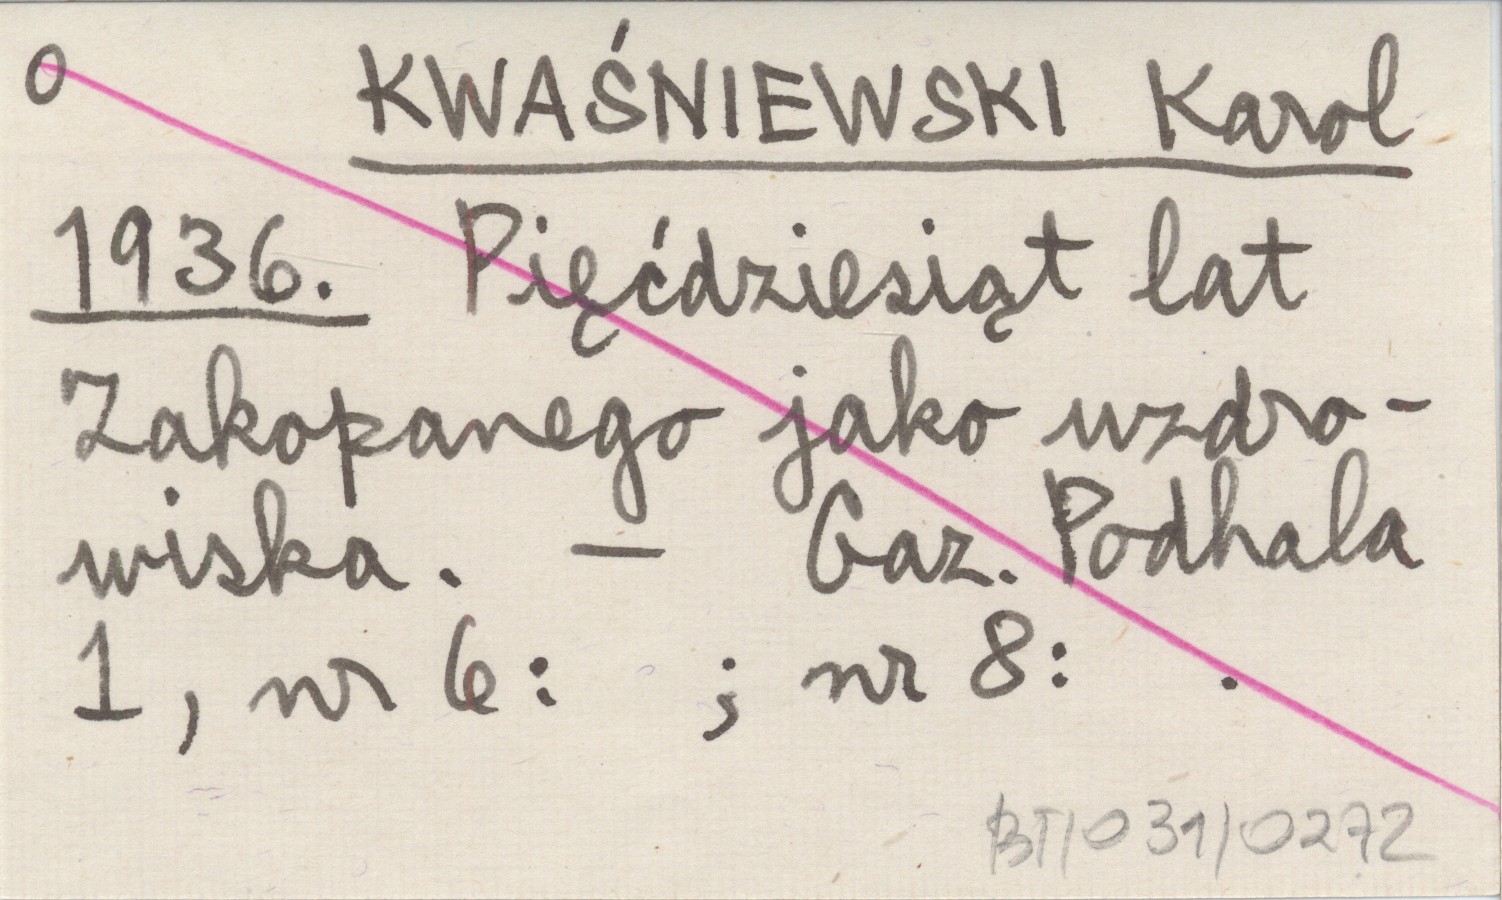 0 KWAŚNIEWSKI Karol
1936. Pięćdziesiąt lat
Zakopanego jako uzdro-
wiska. — Gaz. Podhala
1, nr 6: ; nr 8: .
BT/031/0272